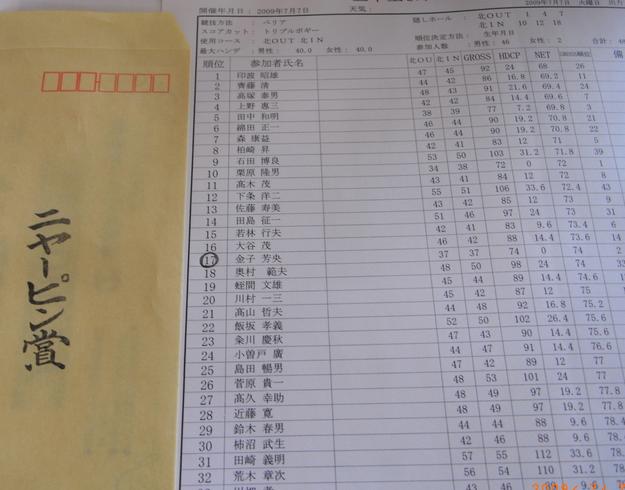 開催年月日： 2009年7月7日 天気：
2009年7月7日 火曜日
競技方法 ： ペリア 隠しホール ： 北OUT 1 4 7
スコアカット： トリプルボギー 北IN 10 12 18
使用コース ： 北OUT 北IN 順位決定方法： 生年月日
最大ハンデ ： 男性： 40.0 女性： 40.0 参加人数 ： 男性： 46 女性： 2 合計：
順位 参加者氏名 北OU 北IN GROSS HDCP NET GROSS順位 備
1 印波 昭雄 47 45 92 24 68 26
2 齊藤 清 44 42 86 16.8 69.2 11
3 高塚 泰男 48 43 91 21.6 69.4 24
4 上野 惠三 42 42 84 14.4 69.6 7
5 田中 和明 38 39 77 7.2 69.8 3
6 綿田 正一 46 44 90 19.2 70.8 21
7 森 康益 46 44 90 19.2 70.8 22
8 柏崎 昇 42 41 83 12 71 5
9 石田 博良 53 50 103 31.2 71.8 39
10 栗原 隆男 34 38 72 0 72 1
11 高木 茂 43 41 84 12 72 8
12 下条 洋二 55 51 106 33.6 72.4 43
13 佐藤 寿美 43 42 85 12 73 9
14 田島 征一 51 46 97 24 73 31
15 若林 行夫 42 41 83 9.6 73.4 6
16 大谷 茂 46 42 88 14.4 73.6 14
17 金子 芳央 37 37 74 0 74 2
18 奥村 範夫 48 50 98 24 74 33
19 蛭間 文雄 45 44 89 14.4 74.6
20 川村 一三 45 42 87 12 75
21 高山 哲夫 44 48 92 16.8 75.2
22 飯坂 孝義 52 50 102 26.4 75.6
23 粂川 慶秋 47 43 90 14.4 75.6
24 小曽戸 廣 44 47 91 14.4 76.6
25 島田 暢男 47 42 89 12 77
26 菅原 貴一 48 53 101 24 77
27 高久 幸助 48 49 97 19.2 77.8
28 近藤 寛 48 49 97 19.2 77.8
29 鈴木 春男 44 44 88 9.6 78.4
30 柿沼 武生 42 46 88 9.6 78.
31 田崎 義明 57 55 112 33.6 78.
32 荒木 章次 56 54 110 31.2 78.
43 46 89 9.6
ニヤーピン賞